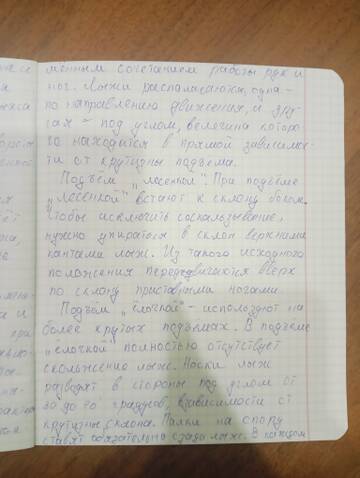 менным сочетанием работы рук и
ног. Лыжи распалагаются, одна -
по направлению движения, а дру
гая - под углом, величина которо
го находится в прямой зависимос
ти от крутизны подъема.
Подъём „лесенкой". При подъёме
„лесенкой" встают к склону боком.
Чтобы исключить соскальзывание,
нужно упираться в склон верхними
кантами лыж. Из такого исходного
положения передвигаются вверх
по склону приставными ногами.
Подъём „ёлочкой" - используют на
более крутых подъёмах. В подъёме
„ёлочкой" полностью отсутствует
скольжение лыж. Носки лыж
разводят в стороны под углом от
до градусов, в зависимости от
крутизны склона. Палки на опору
ставят обязательно сзади лыж. В каждом